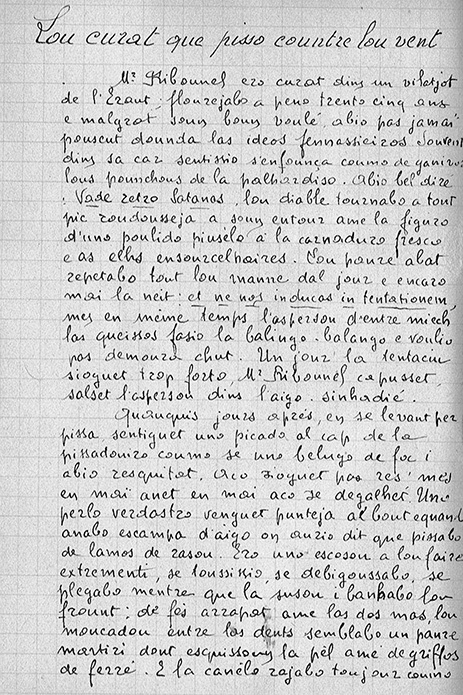 Lou curat que pisso countre lou vent
Mr Ribounel ero curat dins un vilatjot
de l'Eraut : flourejabo a peno trento cinq ans
e malgrat soun boun voulé, abio pas jamaï
pouscut dounda las ideos fennassieiros. Souvent
dins sa car sentissio s'enfounça coumo de ganivos
lous pounchous de la palhardiso. Abio bel dire
Vade retro Satanas, lou diable tournabo a tout
pic roudousseja a soun entour ame la figuro
d'uno poulido piusélo a la carnaduro fresco
e as elhs ensourcelhaires. Lou paure abat
repetabo tout lou manne dal jour e encaro
mai la neit : et ne nos inducas in tentationem,
mes en même temps l'aspersou d'entre miech
las queissos fasio la balingo-balango e voulio
pas demoura chut. Un jour la tentaciu
sioguet trop forto, Mr Ribounel capusset,
salset l'aspersou dins l'aigo-sinhadié.
Quauquis jours après, en se levant per
pissa, sentiguet uno picado al cap de la
pissadouiro coumo se uno belugo de foc i
abio resquitat. Aco sioguet pas res' mes
en mai anet en mai aco se degalhet. Uno
perlo verdastro venguet punteja al bout e quand
anabo escampa d'aigo on aurio dit que pissabo
de lamos de rasou. Ero uno escosou a lou faire
extrementi, se toussissio, se debigoussabo, se
plegabo mentre que la susou i banhabo lou
frount ; de fés arrapat ame las dos mas, lou
moucadou entre las dents semblabo un paure
martiri dont esquissoun la pèl ame de griffos
de ferré. E la canélo rajabo toujour coumo